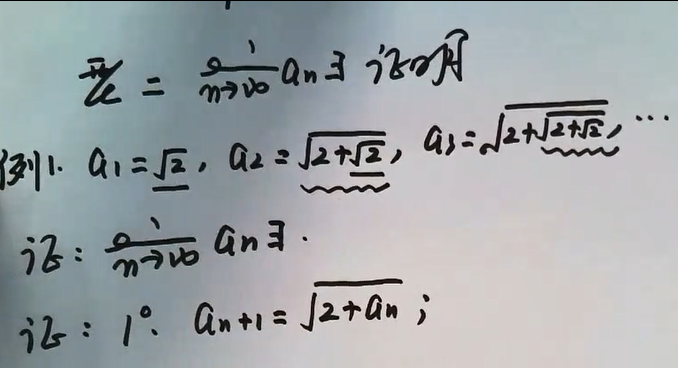 型二 lim n→∞ an ∃ 证明
例1. a1=√2, a2=√(2+√2), a3=√(2+√(2+√2)), …
证: lim n→∞ an ∃.
证: 1°. an+1=√(2+an);